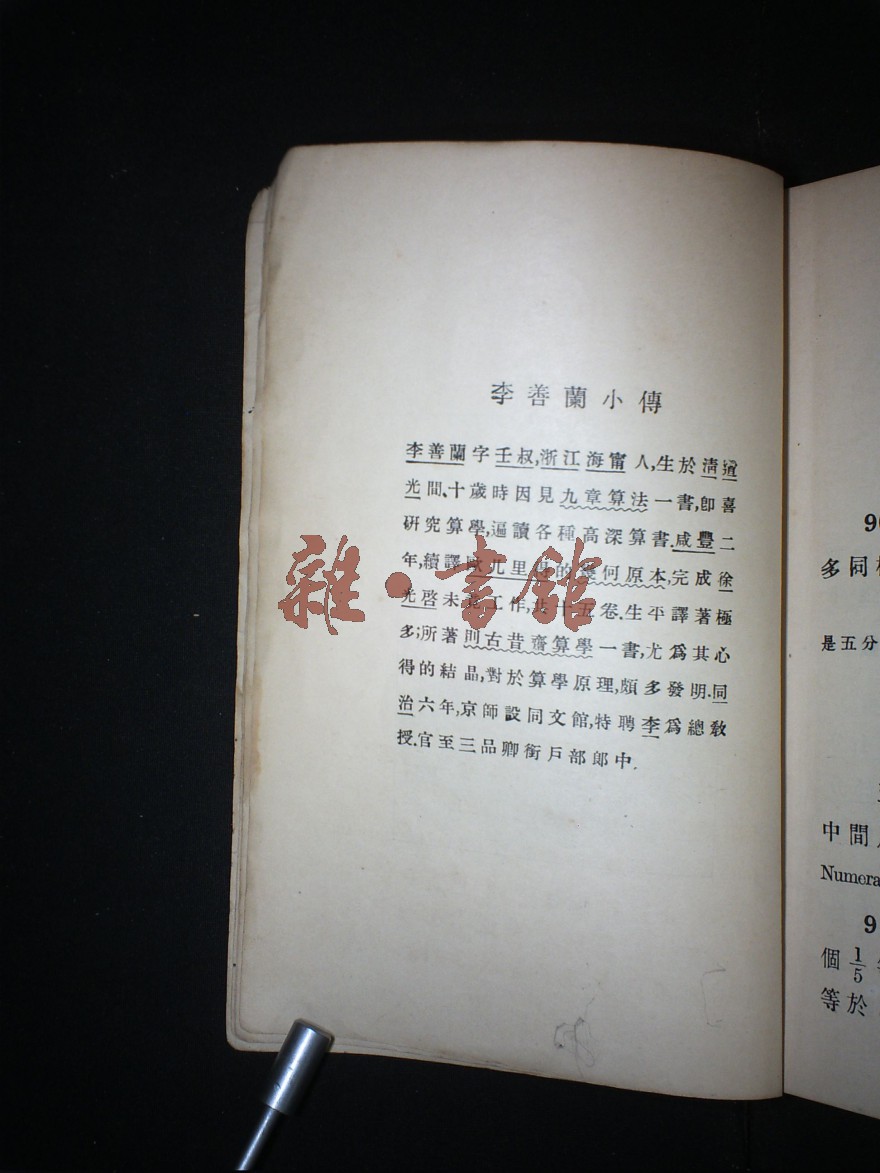 李善蘭小傳
李善蘭字壬叔,浙江海甯人,生於清道
光間、十歲時因見九章算法一書,即喜
研究算學,遍讀各種高深算書.咸豐二
年,續譯歐几里得的幾何原本,完成徐
光啓未竟工作,共十五卷.生平譯著極
多;所著則古昔齋算學一書,尤爲其心
得的結晶,對於算學原理,頗多發明.同
治六年,京師設同文館,特聘李爲總敎
授.官至三品卿銜戶部郎中.
雜·書館
多同
是五分
中間
Numera
9
個 1/5
等於